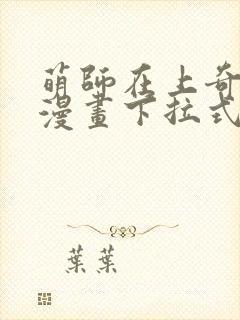 萌師在上奇
漫畫下拉式
葉葉